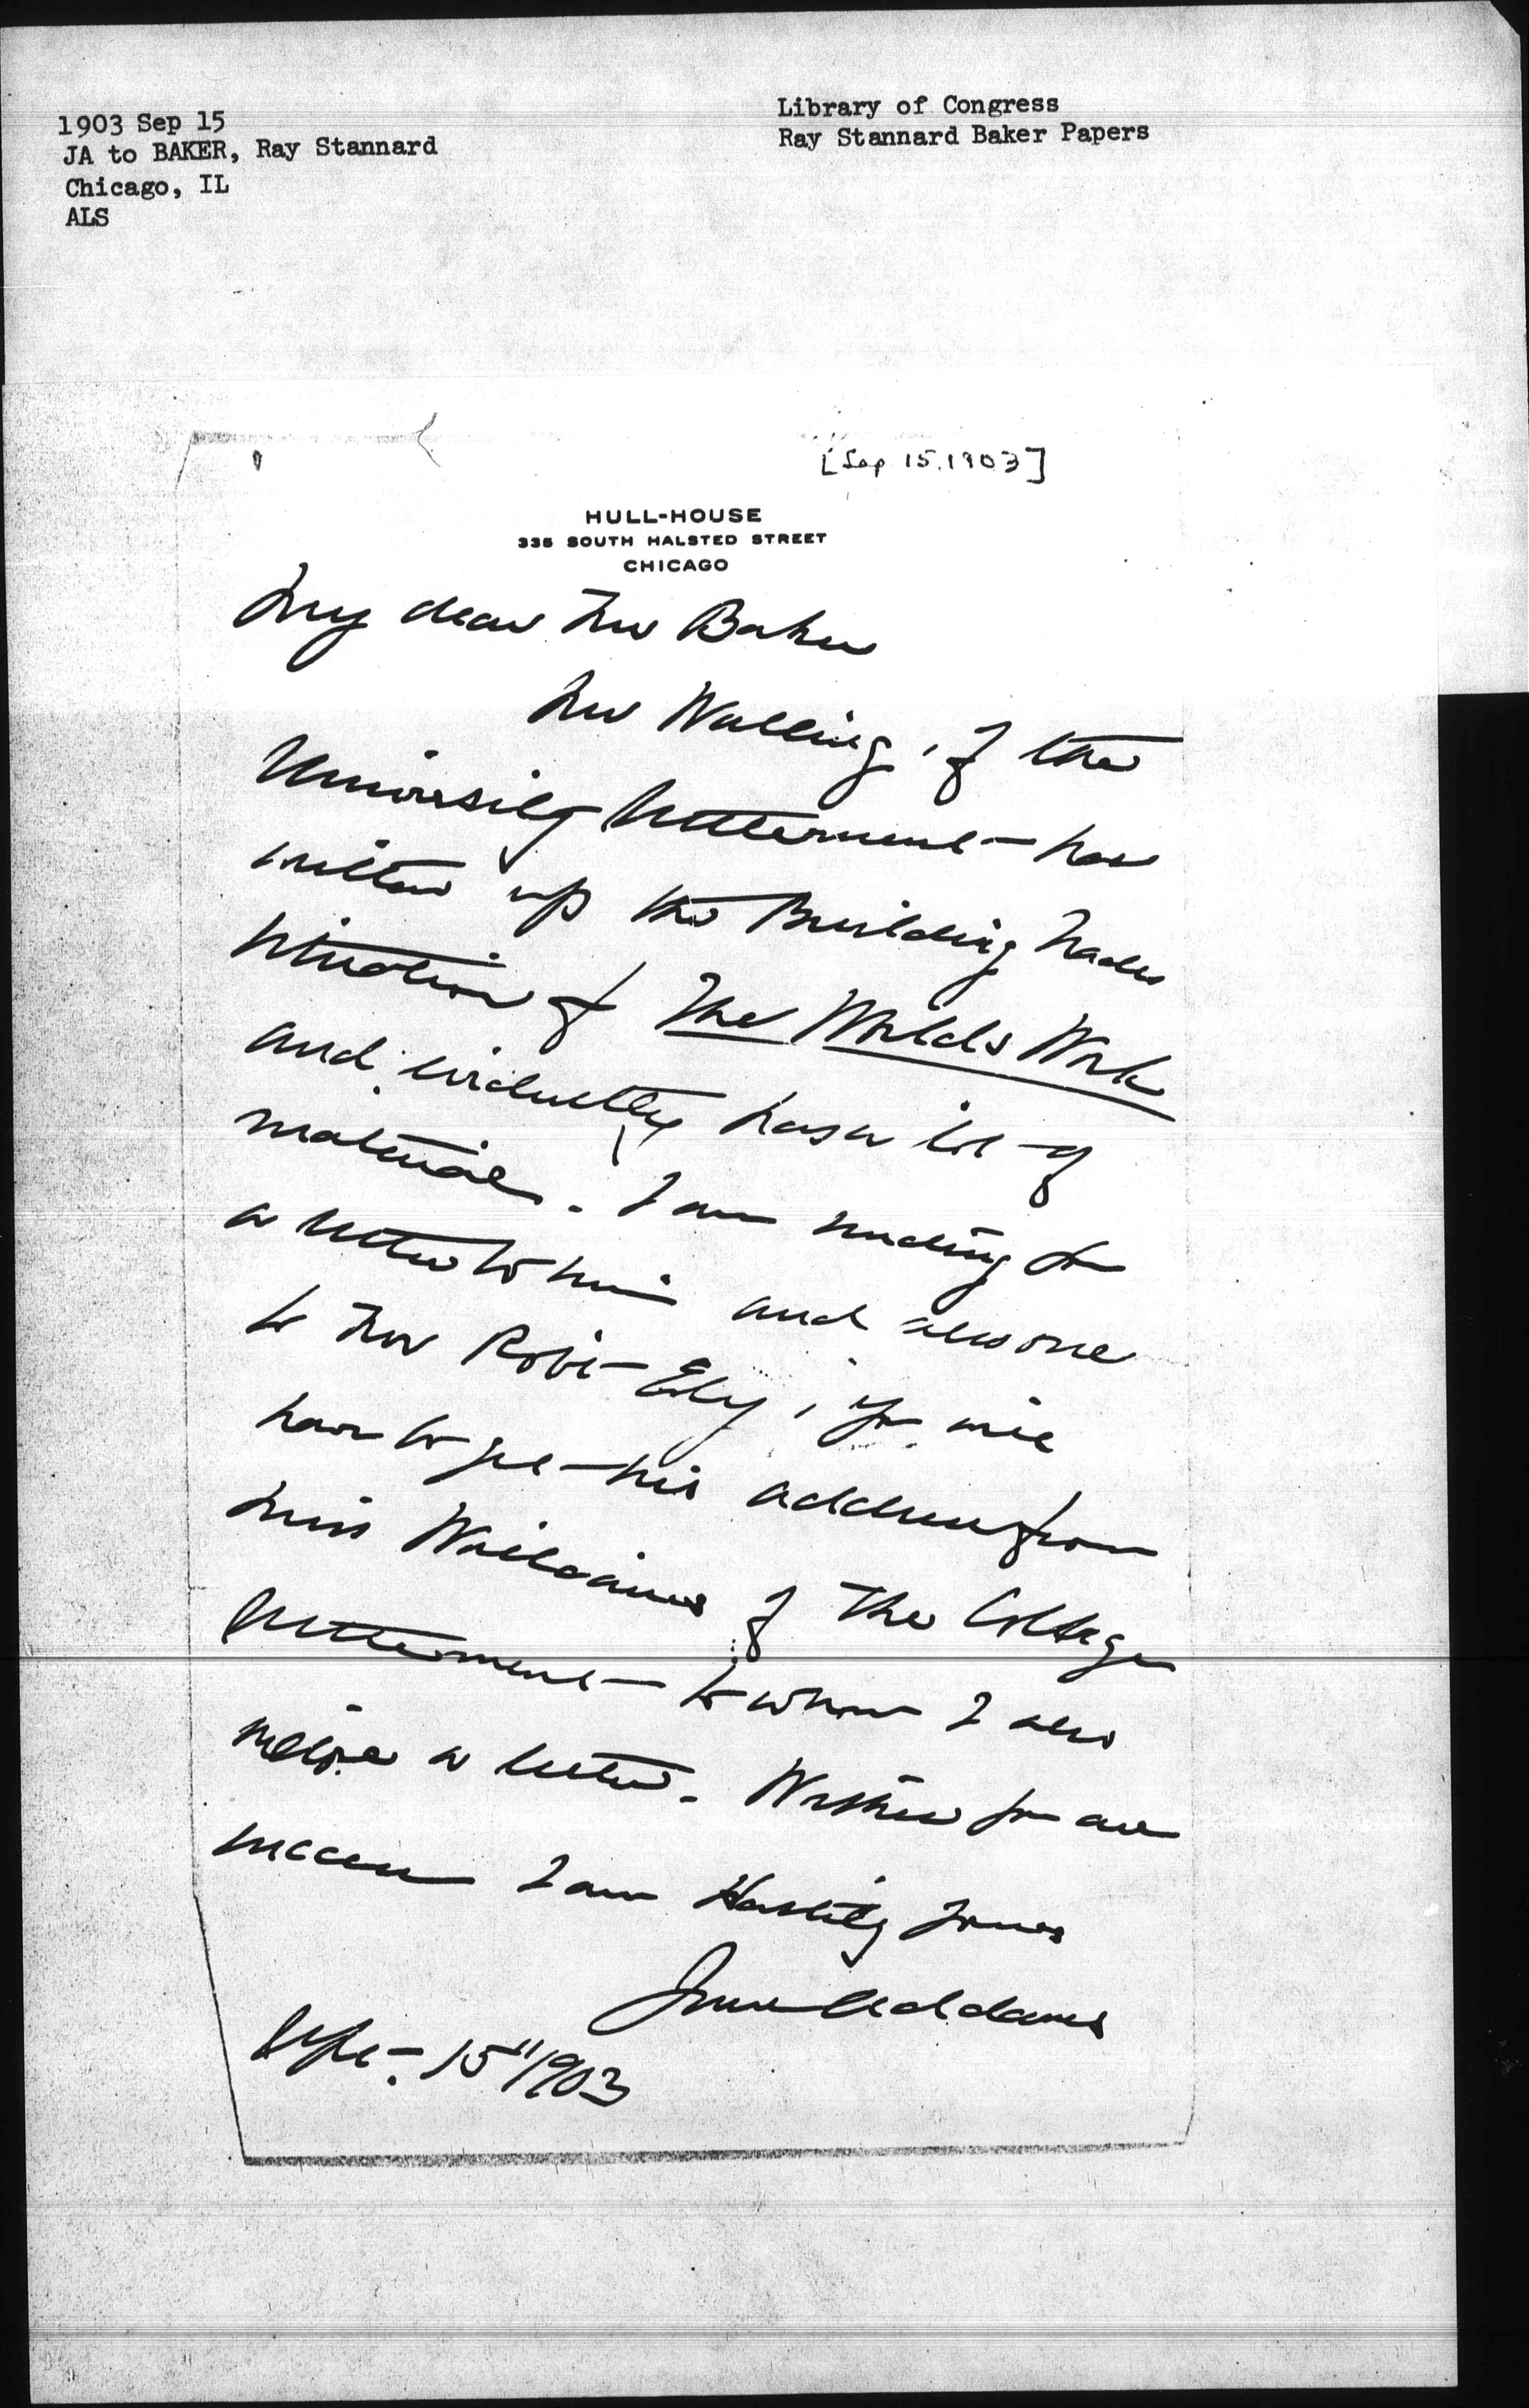 1903 Sep 15
JA to BAKER, Ray Stannard
Chicago, IL
ALS
Library of Congress
Ray Stannard Baker Papers
[Sep 15.1903]
HULL-HOUSE
335 SOUTH HALSTED STREET
CHICAGO
My dear Mr Baker
Mr Walling, of the
University Settlement has
written up the Building Trades
situation for The Worlds Work
and evidently has a lot of
material. I am sending you
a letter to him and also one
to Mr Robt Ely, you will
have to get his address from
Miss Williams of the College
Settlement to whom I also
inclose a letter. Wishing you all
success I am Hastily yours
Jane Addams
Sept. 15" 1903